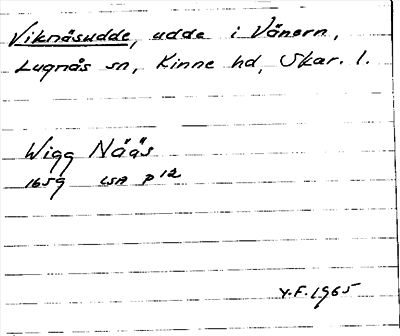 Viknäsudde, udde i Vänern,
Lugnås sn, Kinne hd, Skar. l.
Wigg Nääs
1659 LSA P 12
Y.F. 1965